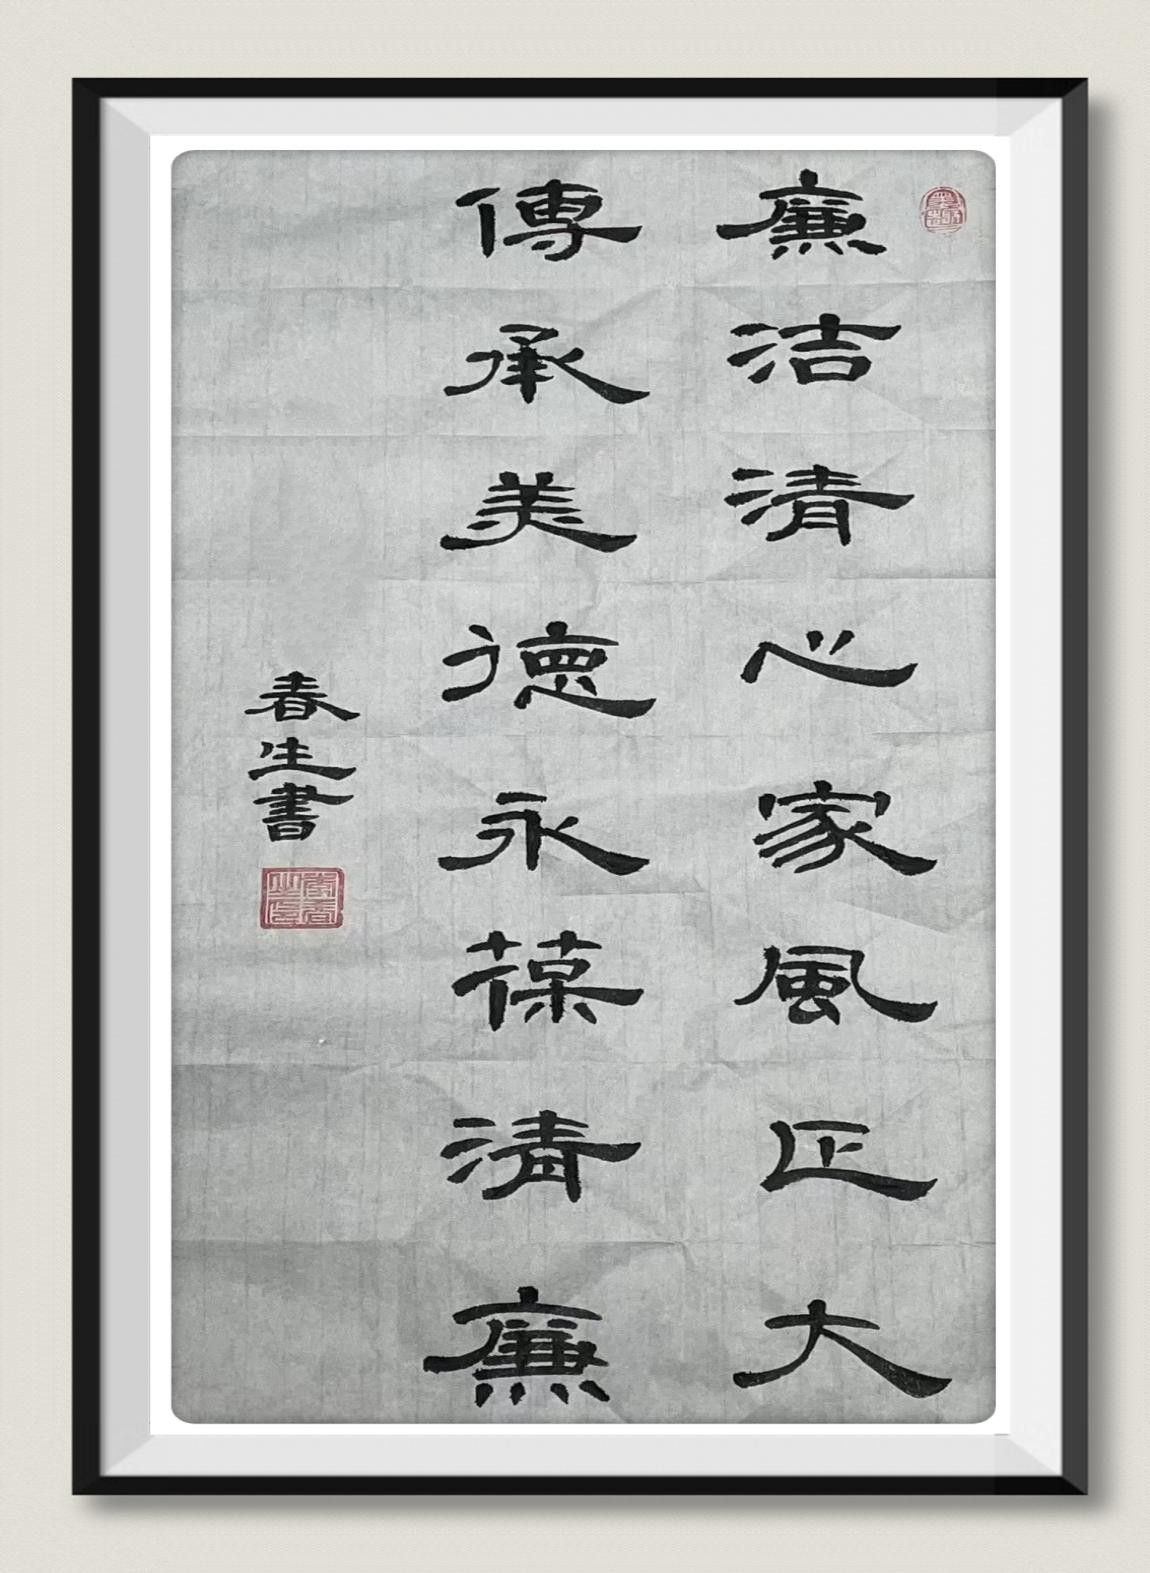 廉洁清心家風正大
傳承美德永葆清廉
春生書